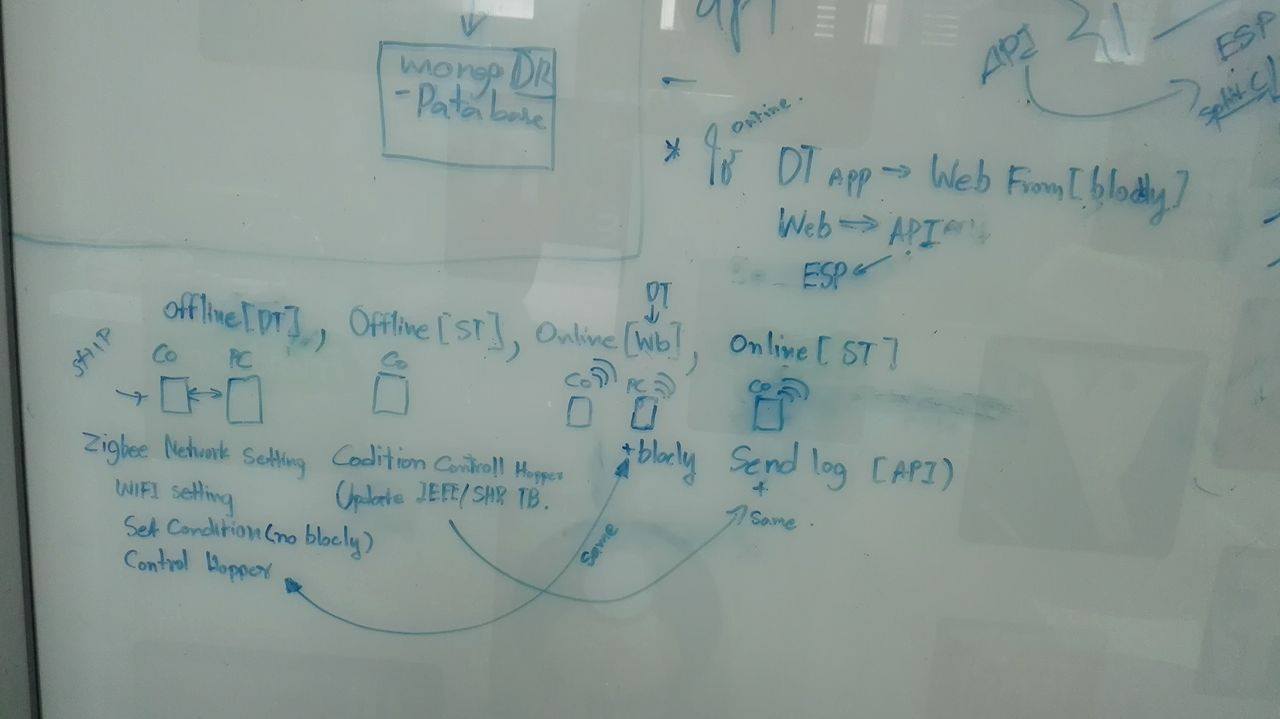 API
ESP
mongo DB
- Database
* online.
DT App → Web From [blockly]
Web → API
ESP
DT
Offline [DT], Offline [ST], Online [Wb], Online [ST]
Co PC Co Co PC Co
Zigbee Network Setting
WIFI setting
Set Condition (no blocly)
Control Hopper
Codition Controll Hopper
Update IEEE/SHR TB.
+ blocly
Send log [API)
+
Same.
Same